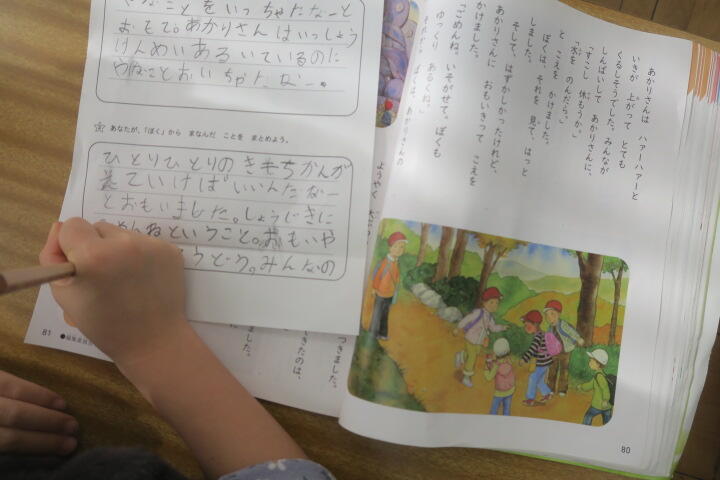 なことをいっちゃたなーと
おもて。あかりさんはいっしょう
けんめいあるいているのに
やなことおいちゃたなー。
あなたが、「ぼく」から まなんだ ことを まとめよう。
ひとりひとりのきもちかんが
えていけばいいんだなー
とおもいました。しょうじきに
ごめんねということ。おもいや
みんなの
81
あかりさんは ハァーハァーと
いきが 上がって とても
くるしそうでした。みんなが
しんぱいして あかりさんに、
「すこし 休もうか。」
「水を のんだら。」
と こえを かけました。
ぼくは、それを 見て、はっと
しました。
そして、はずかしかったけれど、
あかりさんに おもいきって こえを
かけました。
「ごめんね。いそがせて。ぼくも
ゆっくり あるくね。」
ようやく
つきました。
きたのは、
ました。
80